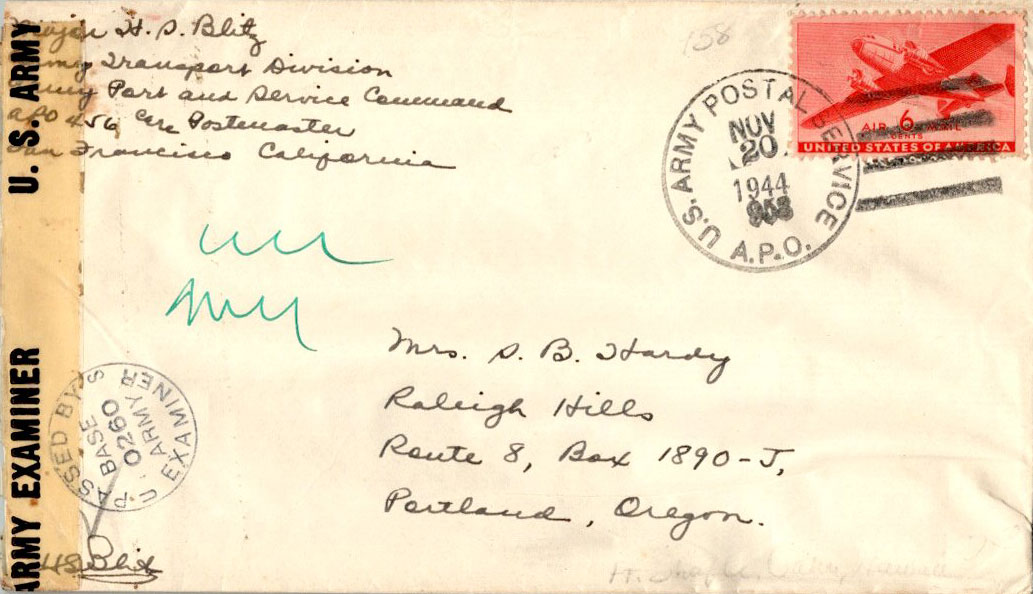 Major H. S. Blitz
Army Transport Division
Army Port and Service Command
APO 456 Care Postmaster
San Francisco California
158
U.S. ARMY POSTAL SERVICE
NOV
20
1944
A.P.O.
AIR 6 MAIL
CENTS
UNITED STATES OF AMERICA
U. S. ARMY
ARMY EXAMINER
PASSED BY
BASE
0260
ARMY
EXAMINER
U.S.
HS Blitz
Mrs. S. B. Hardy
Raleigh Hills
Route 8, Box 1890-J,
Portland, Oregon.